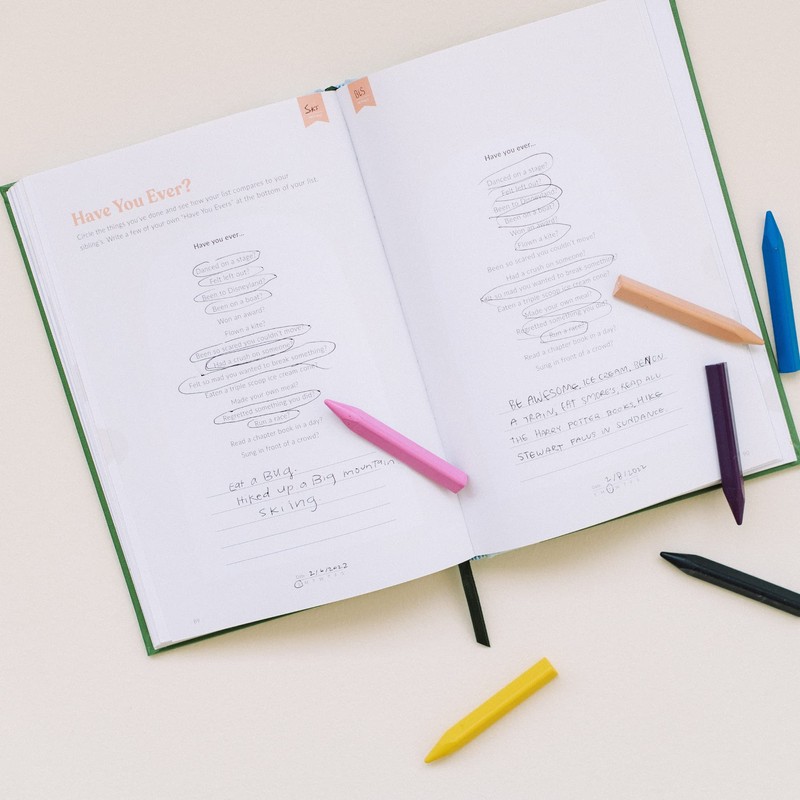 SKT
Have You Ever?
Circle the things you've done and see how your list compares to your
sibling's. Write a few of your own "Have You Evers" at the bottom of your list.
Have you ever...
Danced on a stage?
Felt left out?
Been to Disneyland?
Been on a boat?
Won an award?
Flown a kite?
Been so scared you couldn't move?
Had a crush on someone?
Felt so mad you wanted to break something?
Eaten a triple scoop ice cream cone?
Made your own meal?
Regretted something you did?
Run a race?
Read a chapter book in a day?
Sung in front of a crowd?
Eat a Bug.
Hiked up a Big mountain
skiing
BLS
Have you ever...
Danced on a stage?
Felt left out?
Been to Disneyland?
Been on a boat?
Won an award?
Flown a kite?
Been so scared you couldn't move?
Had a crush on someone?
Felt so mad you wanted to break something?
Eaten a triple scoop ice cream cone?
Made your own meal?
Regretted something you did?
Run a race?
Read a chapter book in a day?
Sung in front of a crowd?
BE AWESOME, ICE CREAM, BEN ON
A TRAIN, EAT SMORES, READ ALL
THE HARRY POTTER BOOKS, HIKE
STEWART FALLS IN SUNDANCE.
2/8/2022